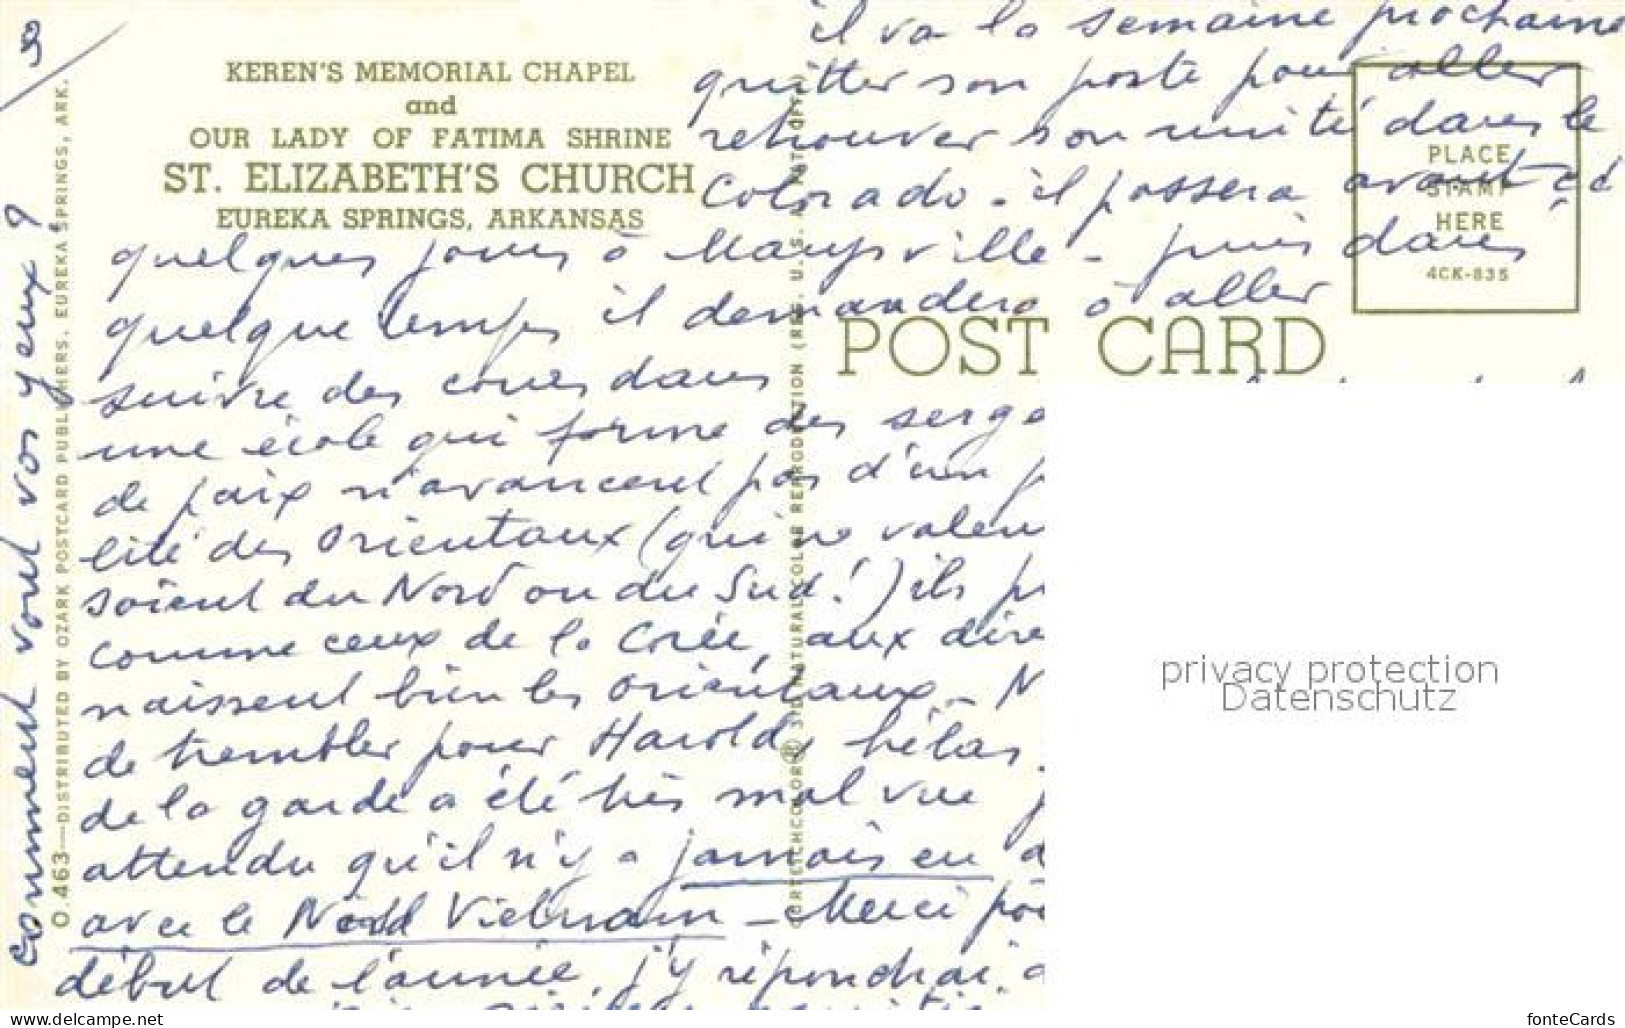 3
KEREN'S MEMORIAL CHAPEL
and
OUR LADY OF FATIMA SHRINE
ST. ELIZABETH'S CHURCH
EUREKA SPRINGS, ARKANSAS
il va la semaine prochaine
quitter son poste pour aller
retrouver son unité dans le
Colorado - il passera avant
PLACE
STAMP
HERE
4CK-835
POST CARD
quelques jours à Marysville - puis dans
quelque temps il demandera à aller
suivre des cours dans
une école qui forme des serge
de paix n'avancent pas d'un
lité des Orientaux (qui ne valen
soient du Nord ou du Sud!) ils
comme ceux de la Corée, aux dire
naissent bien les Orientaux - N
de trembler pour Harold, hélas
de la garde a été très mal vue
attendu qu'il n'y a jamais eu
avec le Nord Vietnam - Merci
début de l'année, j'y répondrai
comment vont vos yeux ?
O.463—DISTRIBUTED BY OZARK POSTCARD PUBLISHERS, EUREKA SPRINGS, ARK.
CURTEICHCOLOR® 3D NATURAL COLOR REPRODUCTION (REG. U.S. PAT. OFF.
privacy protection
Datenschutz
www.delcampe.net
fonteCards